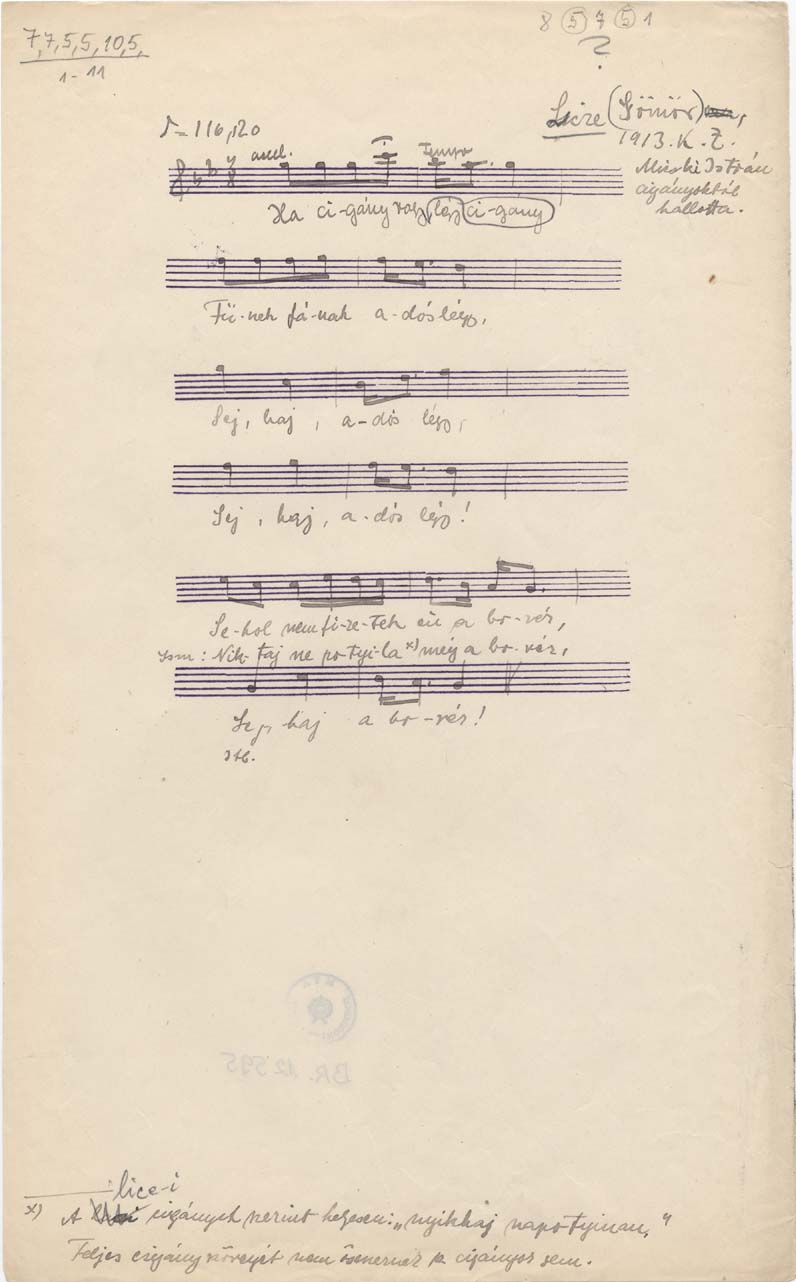 8 5 7 5 1
?
7,7,5,5,10,5,
1-11
Licze (Gömör)
1913. K. Z.
♪= 116, 120
accel.
Tempo
Micski István
cigányoktól
hallotta.
Ha ci-gány vagy, légy ci-gany
Fü-nek fá-nak a-dós légy,
Sej, haj, a-dós légy,
Sej, haj, a-dós légy!
Se-hol nem fi-ze-tek én a bo-rér,
Ism: Nik-taj ne po-tyi-la x) még a bo-rér,
Sej, haj a bo-rér!
stb.
lice-i
x) A cigányok szerint helyesen: „nyikhaj napotyinan,"
Teljes cigány szövegét nem ösmerték a cigányok sem.
BR. 12.595